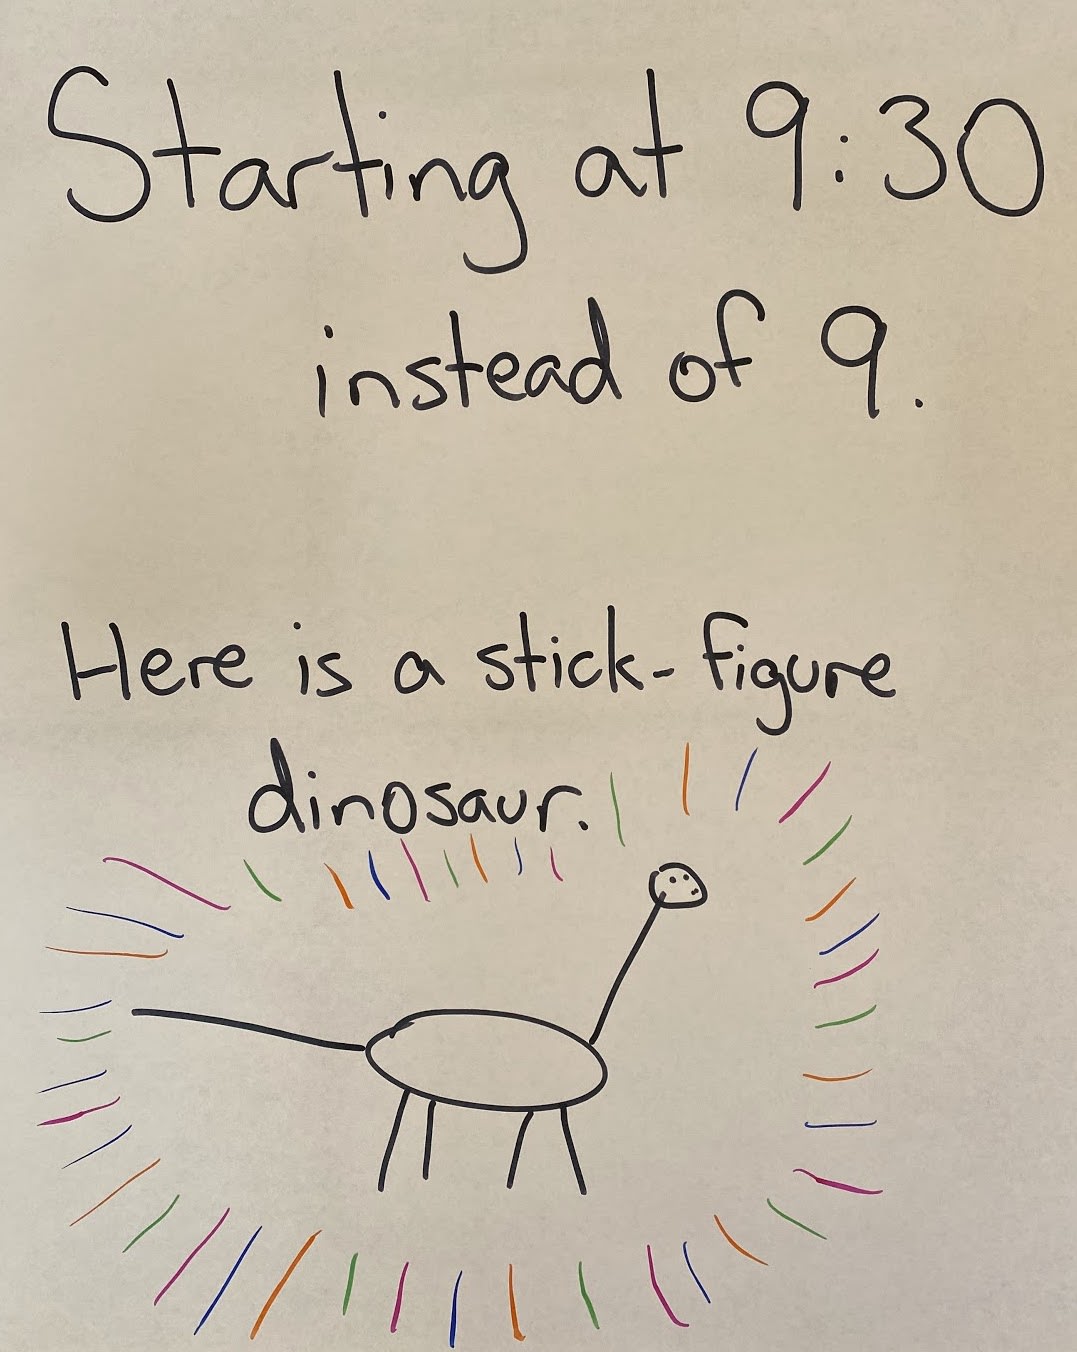 Starting at 9:30
instead of 9.
Here is a stick-figure
dinosaur.